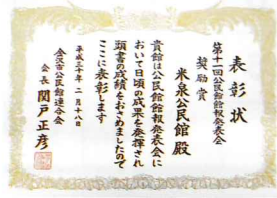 表彰状
第十一回公民館館報発表会
奨励賞
米泉公民館 殿
貴館は公民館館報発表会に
おいて日頃の成果を発揮され
頭書の成績をおさめましたので
ここに表彰します
平成三十年 二月十八日
金沢市公民館連合会
会長 関戸正彦